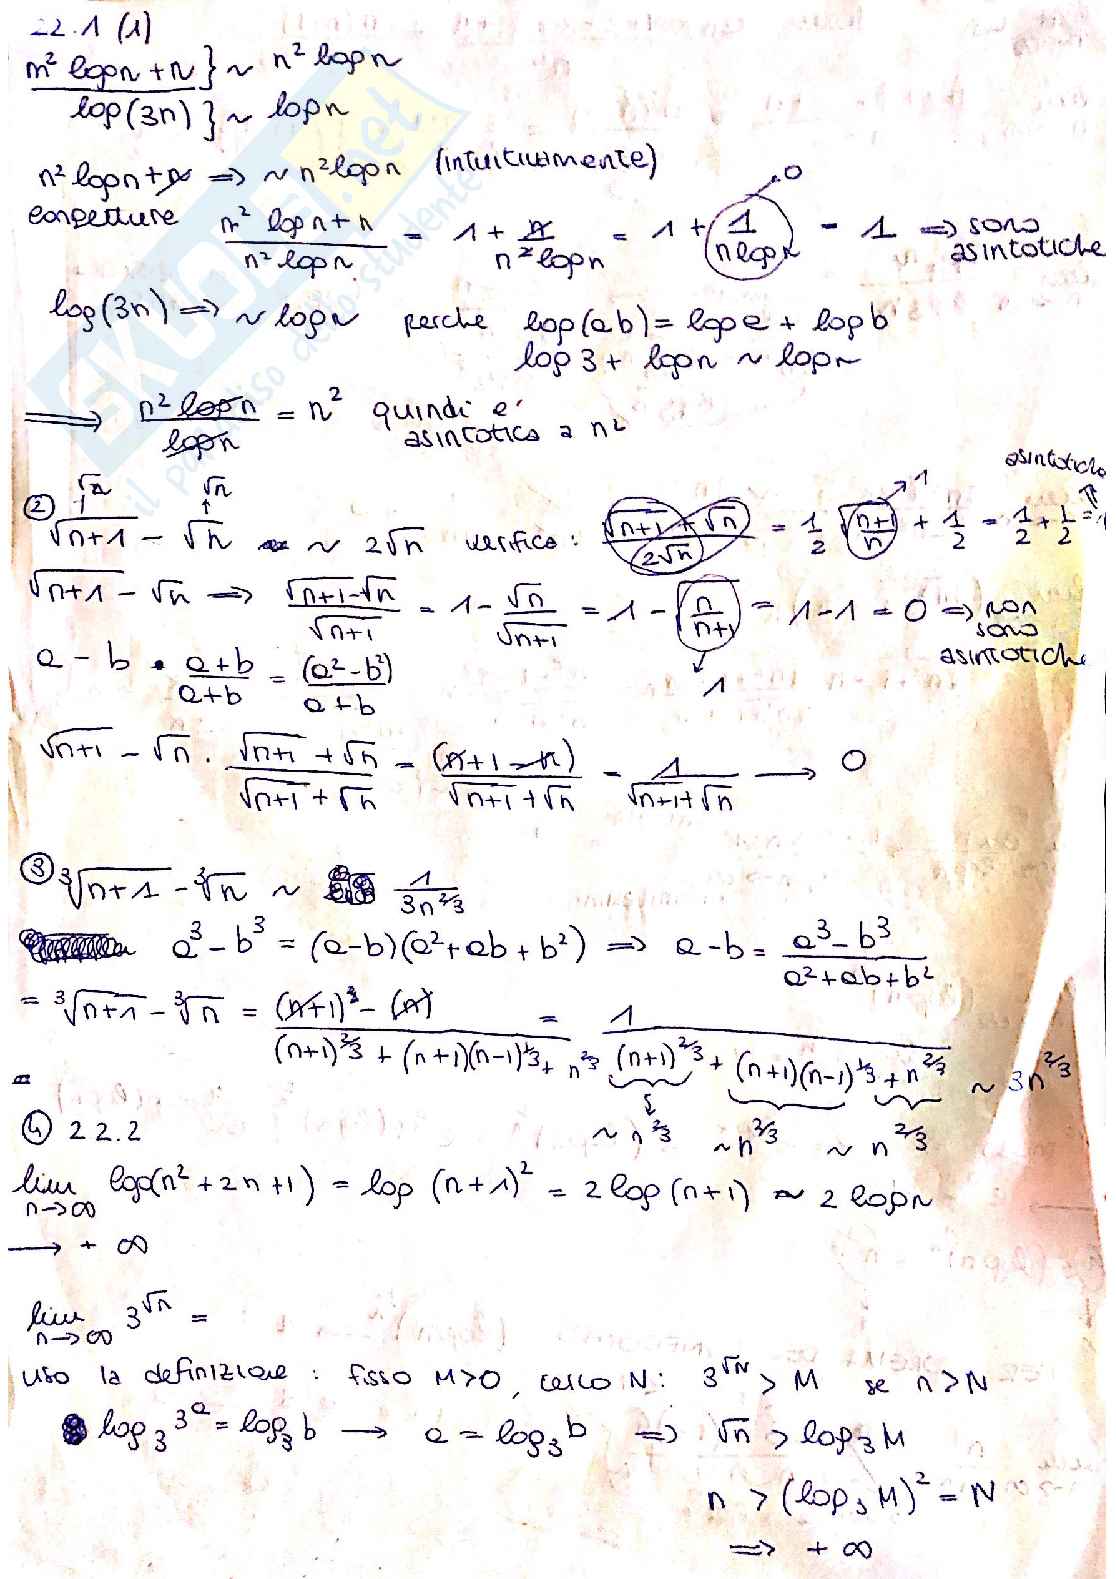 22.1 (1)
n² log n + n } ~ n² log n
log(3n) } ~ log n
n² log n + n => ~ n² log n (intuitivamente)
congetture (n² log n + n)/(n² log n) = 1 + n/(n² log n) = 1 + 1/(n log n) → 0 = 1 => sono asintotiche
log(3n) => ~ log n perche log(ab) = log a + log b
log 3 + log n ~ log n
=> (n² log n)/(log n) = n² quindi e' asintotica a n²
② √n √n asintotiche
√(n+1) - √n ~ 2√n verifica: (√(n+1) + √n)/(2√n) = 1/2 √((n+1)/n) → 1 + 1/2 = 1/2 + 1/2 = 1
√(n+1) - √n => (√(n+1) - √n)/√(n+1) = 1 - √n/√(n+1) = 1 - √(n/(n+1)) = 1 - 1 = 0 => non sono asintotiche
→ 1
a - b · (a+b)/(a+b) = (a² - b²)/(a+b)
√(n+1) - √n · (√(n+1) + √n)/(√(n+1) + √n) = (n+1-n)/(√(n+1) + √n) = 1/(√(n+1) + √n) → 0
③ ³√(n+1) - ³√n ~ 1/(3n^(2/3))
a³ - b³ = (a-b)(a² + ab + b²) => a - b = (a³ - b³)/(a² + ab + b²)
= ³√(n+1) - ³√n = ((n+1)³ - (n))/((n+1)^(2/3) + (n+1)(n-1)^(1/3) + n^(2/3)) = 1/((n+1)^(2/3) + (n+1)(n-1)^(1/3) + n^(2/3)) ~ 3n^(2/3)
~ n^(2/3) ~ n^(2/3) ~ n^(2/3)
④ 22.2
lim n→∞ log(n² + 2n + 1) = log (n+1)² = 2 log (n+1) ~ 2 log n
→ + ∞
lim n→∞ 3^√n =
uso la definizione : fisso M>0, cerco N: 3^√N > M se n > N
log₃ 3^a = log₃ b → a = log₃ b => √n > log₃ M
n > (log₃ M)² = N
=> + ∞
SKUOLA.net
il paradiso dello studente